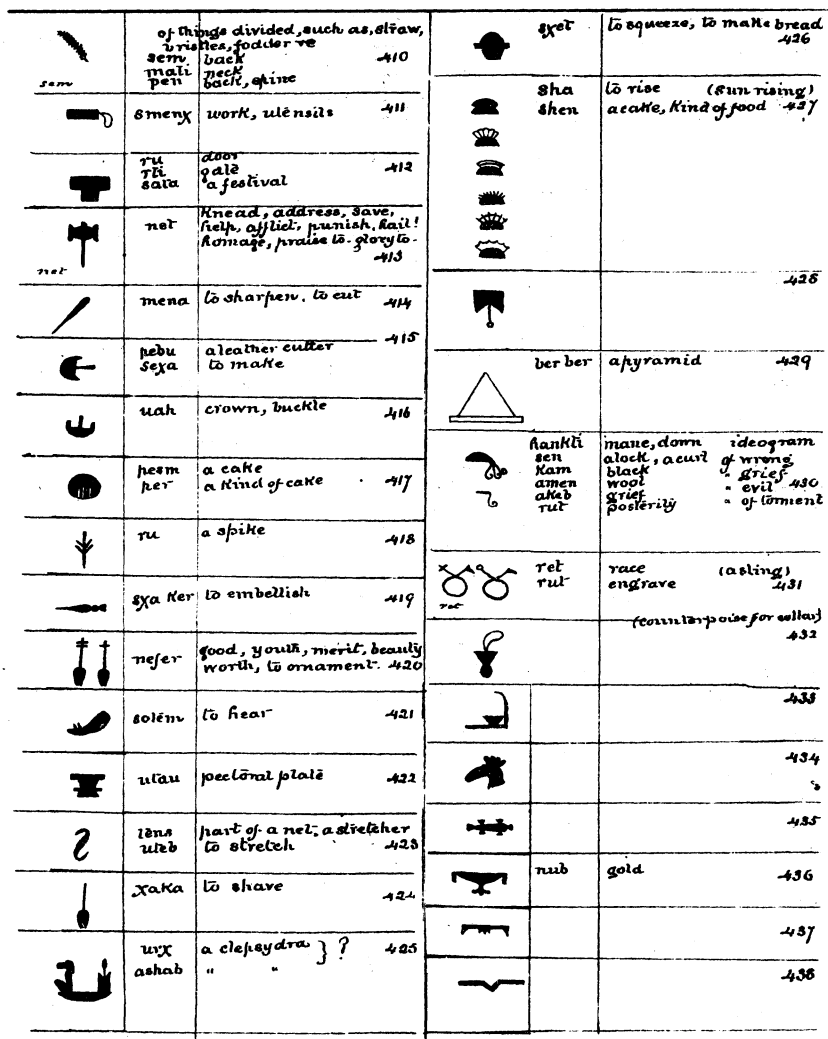 of things divided, such as, straw,
bristles, fodder re
sem back 410
mali neck
pen back, spine
sem
smenχ work, utensils 411
ru door
rti gate 412
sata a festival
net Knead, address, save,
help, afflict, punish, hail!
homage, praise to. glory to.
net 413
mena to sharpen. to cut 414
415
pebu a leather cutter
seχa to make
uah crown, buckle 416
pesm a cake
per a Kind of cake 417
ru a spike 418
sχa Ker to embellish 419
nefer good, youth, merit, beauty
worth, to ornament. 420
solem to hear 421
utau pectoral plate 422
tens part of a net, a stretcher
uteb to stretch 423
χaKa to shave 424
urχ a clepsydra } ? 425
ashab " "
sχet to squeeze, to make bread
426
sha to rise (sun rising)
shen a cake, Kind of food 427
428
ber ber a pyramid 429
hankti mane, down ideogram
sen a lock, a curl of wrong
Kam black " grief
amen wool " evil 430
akeb grief " of torment
rut posterity
ret race (a sling)
rut engrave 431
ret
(counterpoise for collar)
432
433
434
435
nub gold 436
437
438